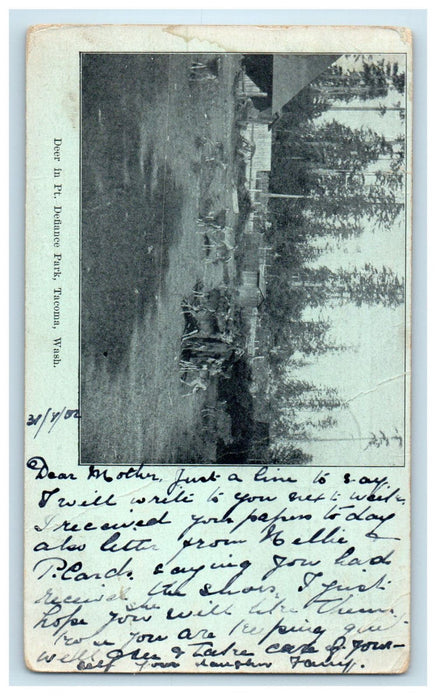 Deer in Pt. Defiance Park, Tacoma, Wash.
Dear Mother, Just a line to say
I will write to you next week.
I received your papers today
also letter from Nellie &
P. Cards, saying you had
received the shoes, I just
hope you will like them
you are keeping
well & take care of your-
self your daughter